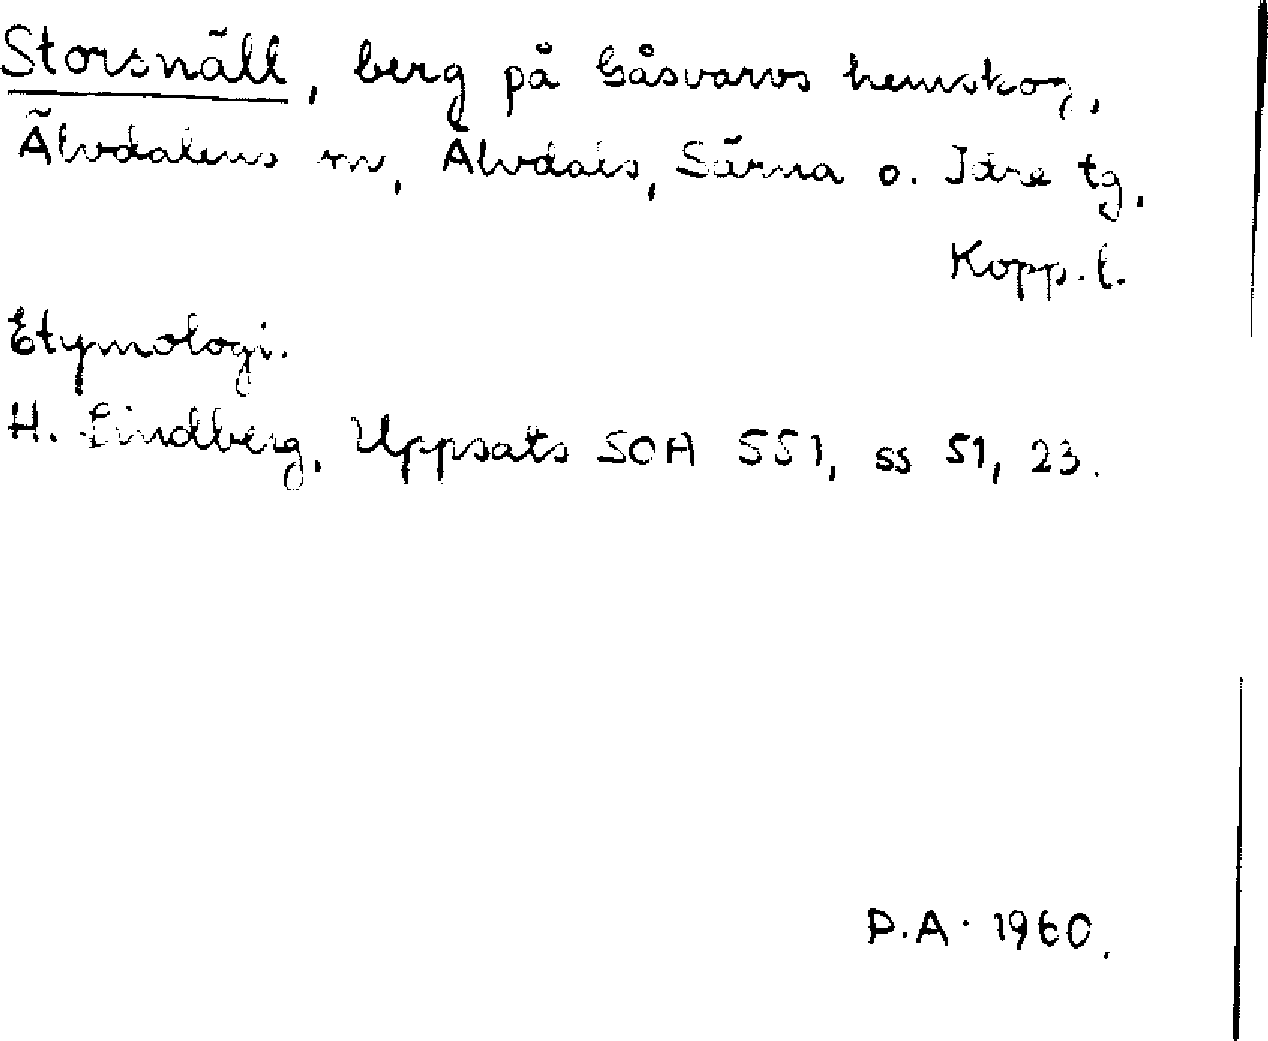 Storsnäll, berg på Gåsvarvs hemskog,
Älvdalens sn, Älvdals, Särna o. Idre tg,
Kopp. l.
Etymologi.
H. Lindberg, Uppsats SOA 551, ss 51, 23.
P.A. 1960.